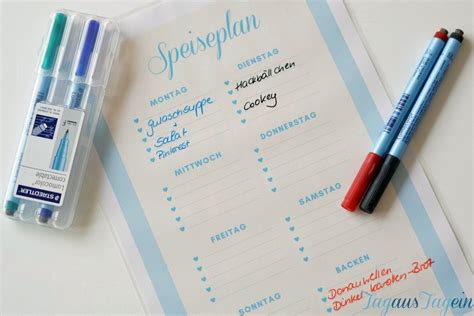 Speiseplan
MONTAG
Gulaschsuppe
+
Salat
Pinterest
DIENSTAG
Hackbällchen
Cookey
MITTWOCH
DONNERSTAG
FREITAG
SAMSTAG
SONNTAG
BACKEN
Donauwellen
Dinkel Karotten-Brot
STAEDTLER
Lumocolor
correctable
TagausTagein